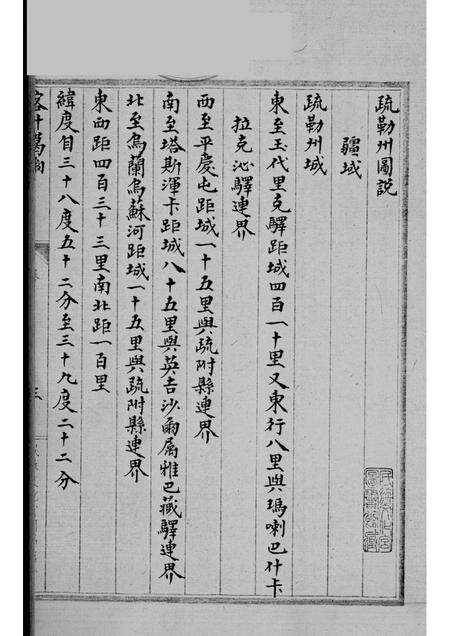 疏勒州圖説
疆域
疏勒州城
東至玉代里克驛距城四百一十里又東行八里與瑪喇巴什卡
拉克沁驛連界
西至平慶屯距城一十五里與疏附縣連界
南至塔斯渾卡距城八十五里與英吉沙爾屬雅巴藏驛連界
北至烏蘭烏蘇河距城一十五里與疏附縣連界
東西距四百三十三里南北距一百里
緯度自三十八度五十二分至三十九度二十二分